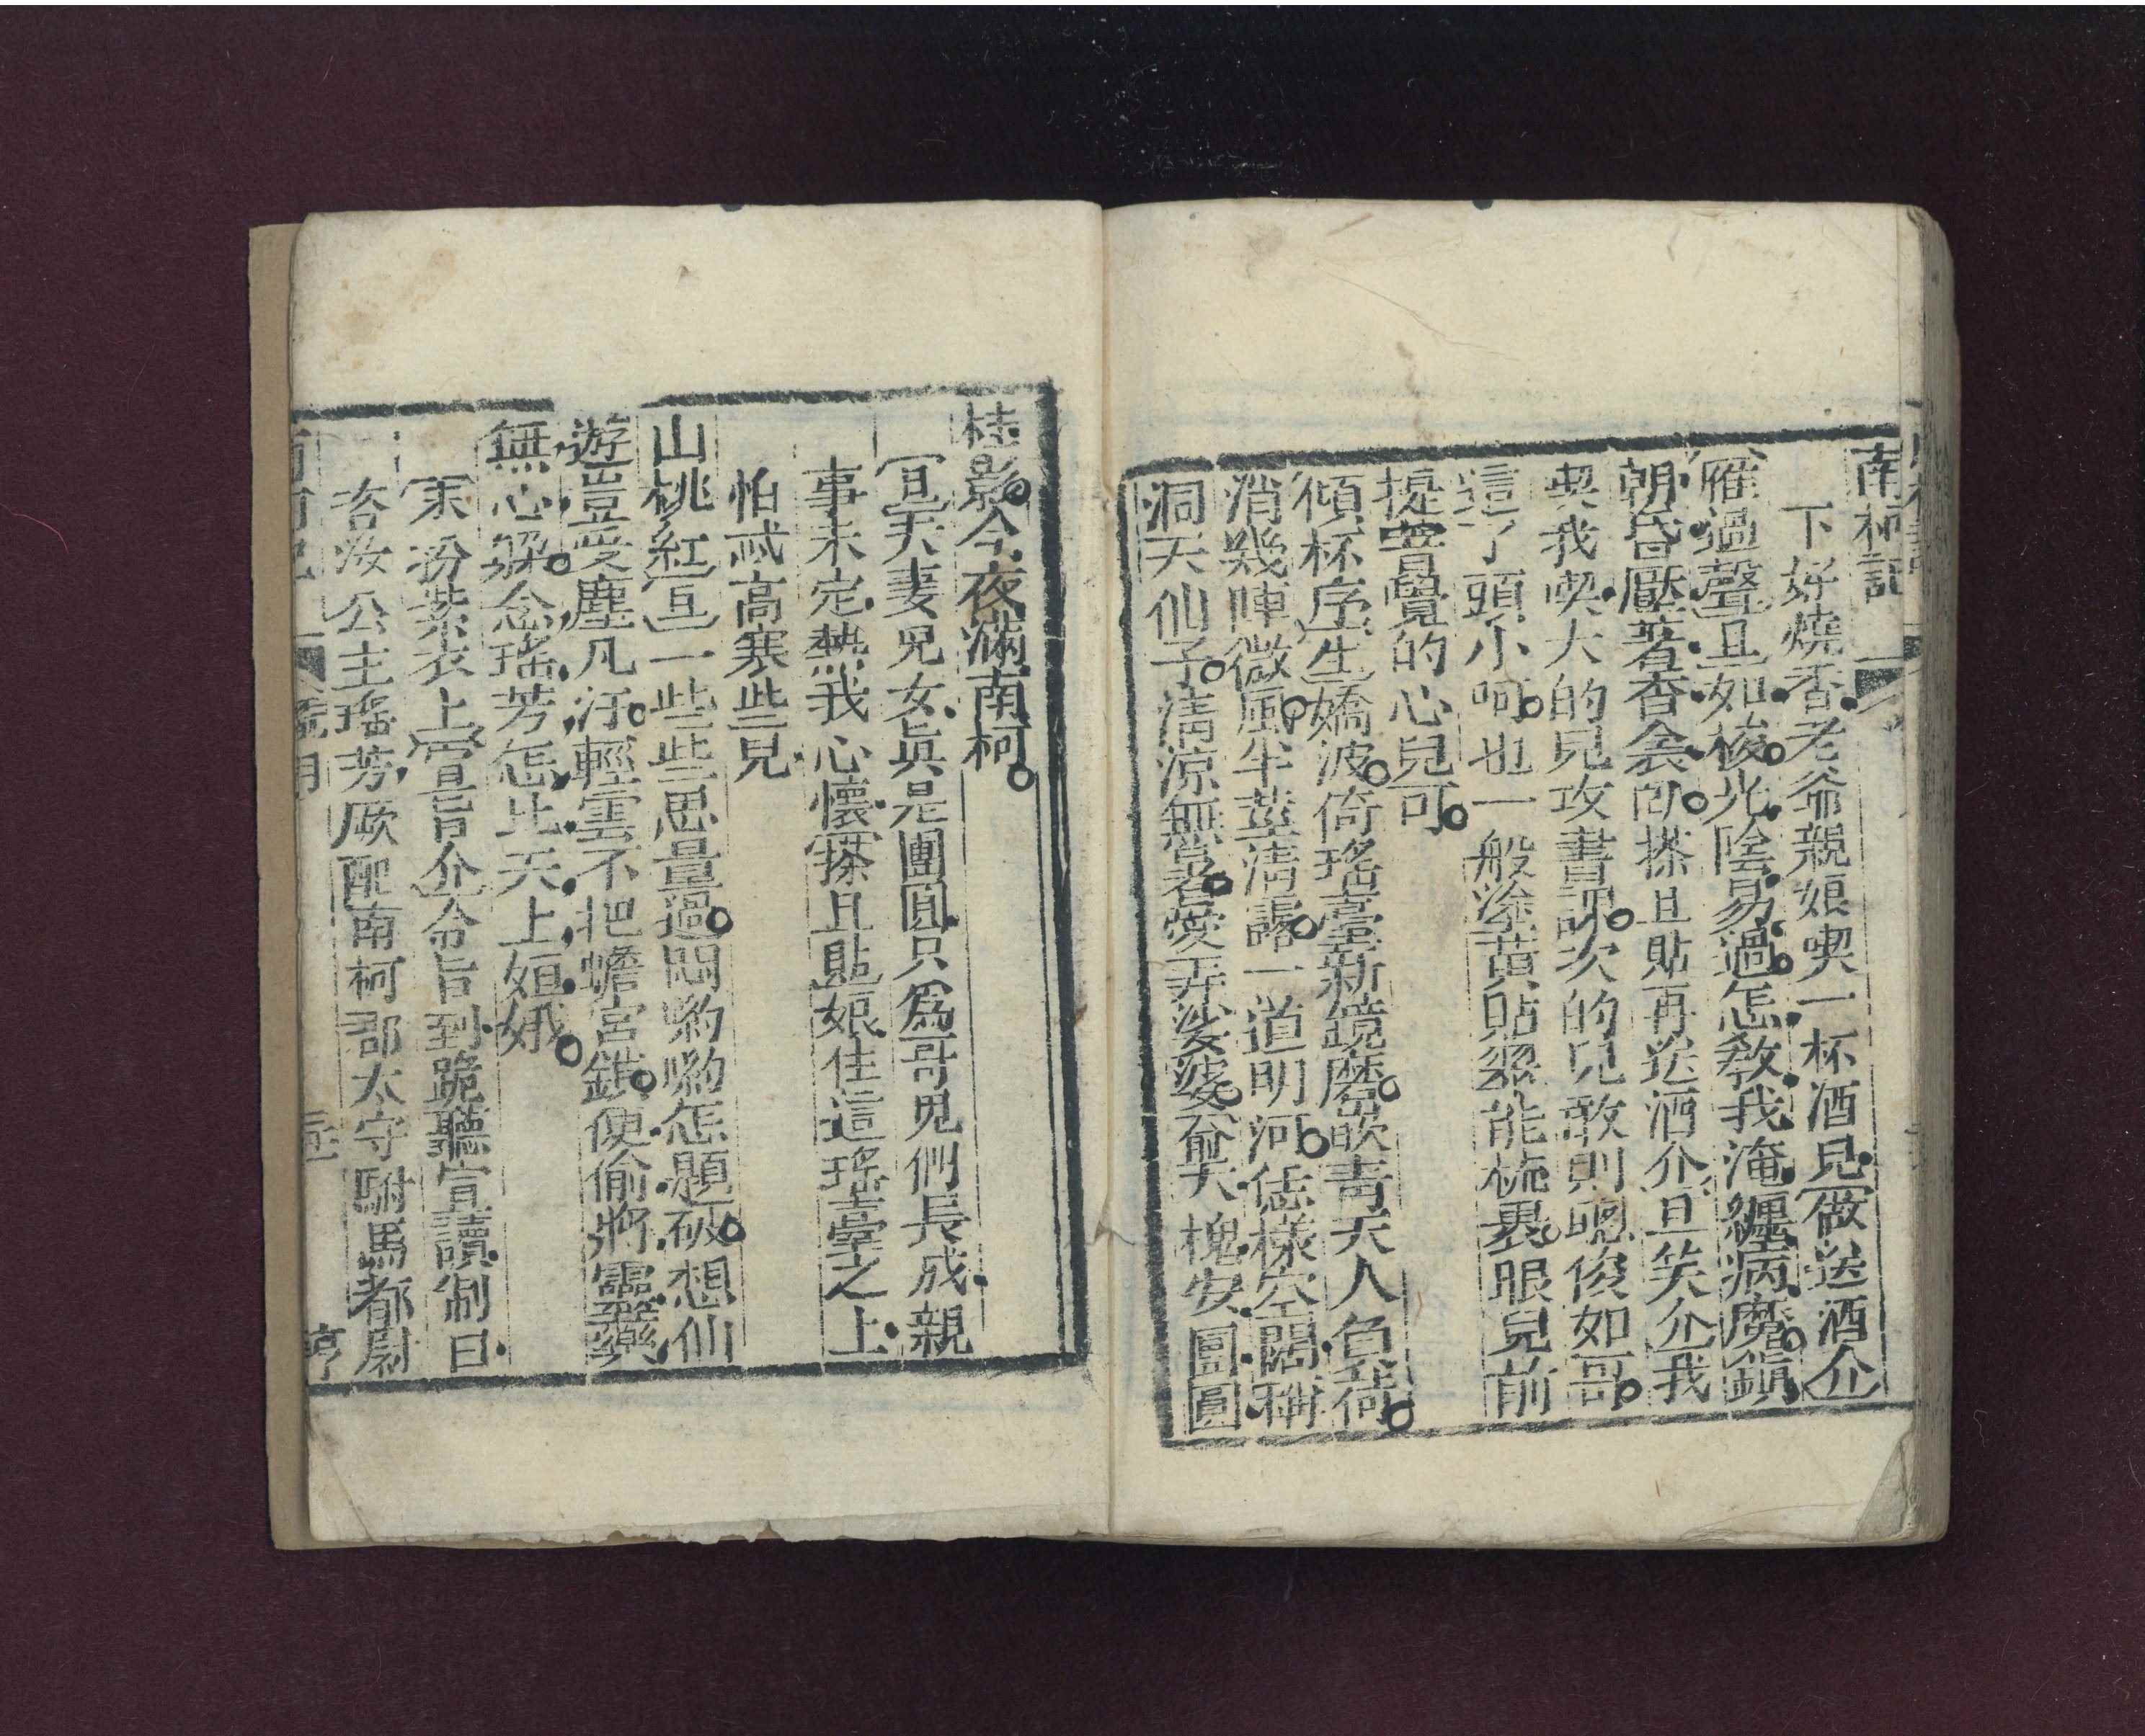 南柯記
下好燒香老爺親娘喫一杯酒兒做送酒介
雁過聲旦如梭光陰易過怎教我淹纏病魔鎖
朝昏壓著香衾卧搽且貼再送酒介旦笑介我
喫我喫大的兒攻書課次的兒敢則聰俊如哥
這了頭小呵也一般塗黃貼翠能梳裹眼兒前
提害覺的心兒可
傾杯序生嬌波倚瑤臺新鏡磨歃青天人負荷
消幾陣微風半莖清露一道明河恁樣空闊稱
洞天仙子清涼無暑愛弄娑婆合天槐安國圓
桂影今夜滿南柯
旦夫妻兒女眞是團圓只爲哥兒們長成親
事未定熱我心懷搽且貼娘住這瑤臺之上
怕忒高寒些兒
山桃紅旦一些些思量過悶喲喲怎題破想仙
遊豈受塵凡汙輕雲不把蟾宮鎖便偷將靈藥
無心躱念瑤芳怎比天上姮娥
末扮紫衣上宣旨介令旨到跪聽宣讀制曰
咨汝公主瑤芳厥配南柯郡太守駙馬都尉
亨